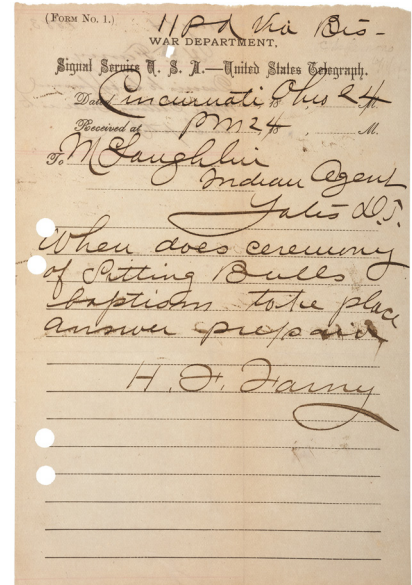 (FORM NO. 1.) 11 Pd Via Bis-
WAR DEPARTMENT,
Signal Service U. S. A.—United States Telegraph.
Dated Cincinnati Ohio 24 M.
Received at PM 24 , M.
To McLaughlin
Indian Agent
Yates D.T.
When does ceremony
of Sitting Bulls
baptism take place
answer prepaid
H. F. Farny